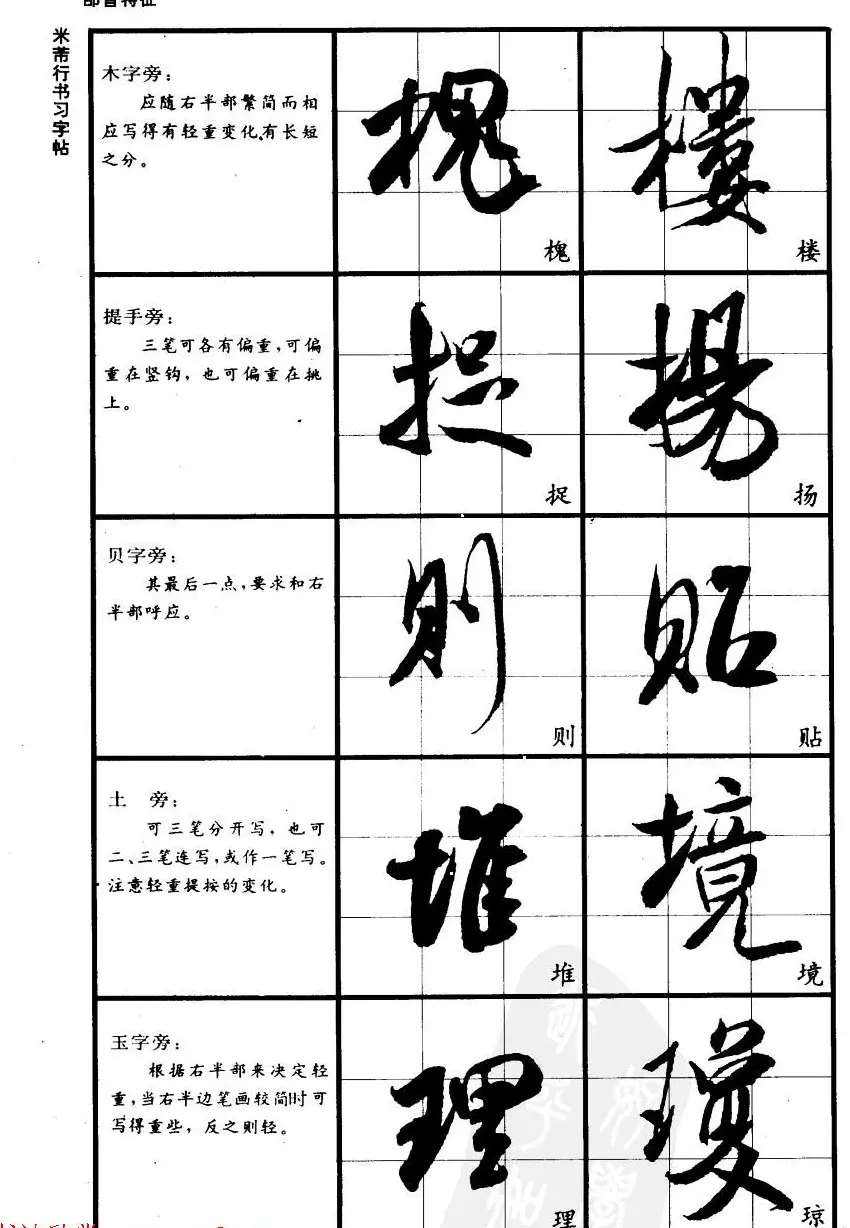 部首特征
米芾行书习字帖
木字旁：
应随右半部繁简而相
应写得有轻重变化、有长短
之分。
槐
樓
槐
楼
提手旁：
三笔可各有偏重，可偏
重在竖钩，也可偏重在挑
上。
捉
揚
捉
扬
贝字旁：
其最后一点，要求和右
半部呼应。
則
貼
则
贴
土　旁：
可三笔分开写，也可
二、三笔连写，或作一笔写。
注意轻重提按的变化。
堆
境
堆
境
玉字旁：
根据右半部来决定轻
重，当右半边笔画较简时可
写得重些，反之则轻。
理
瓊
理
琼